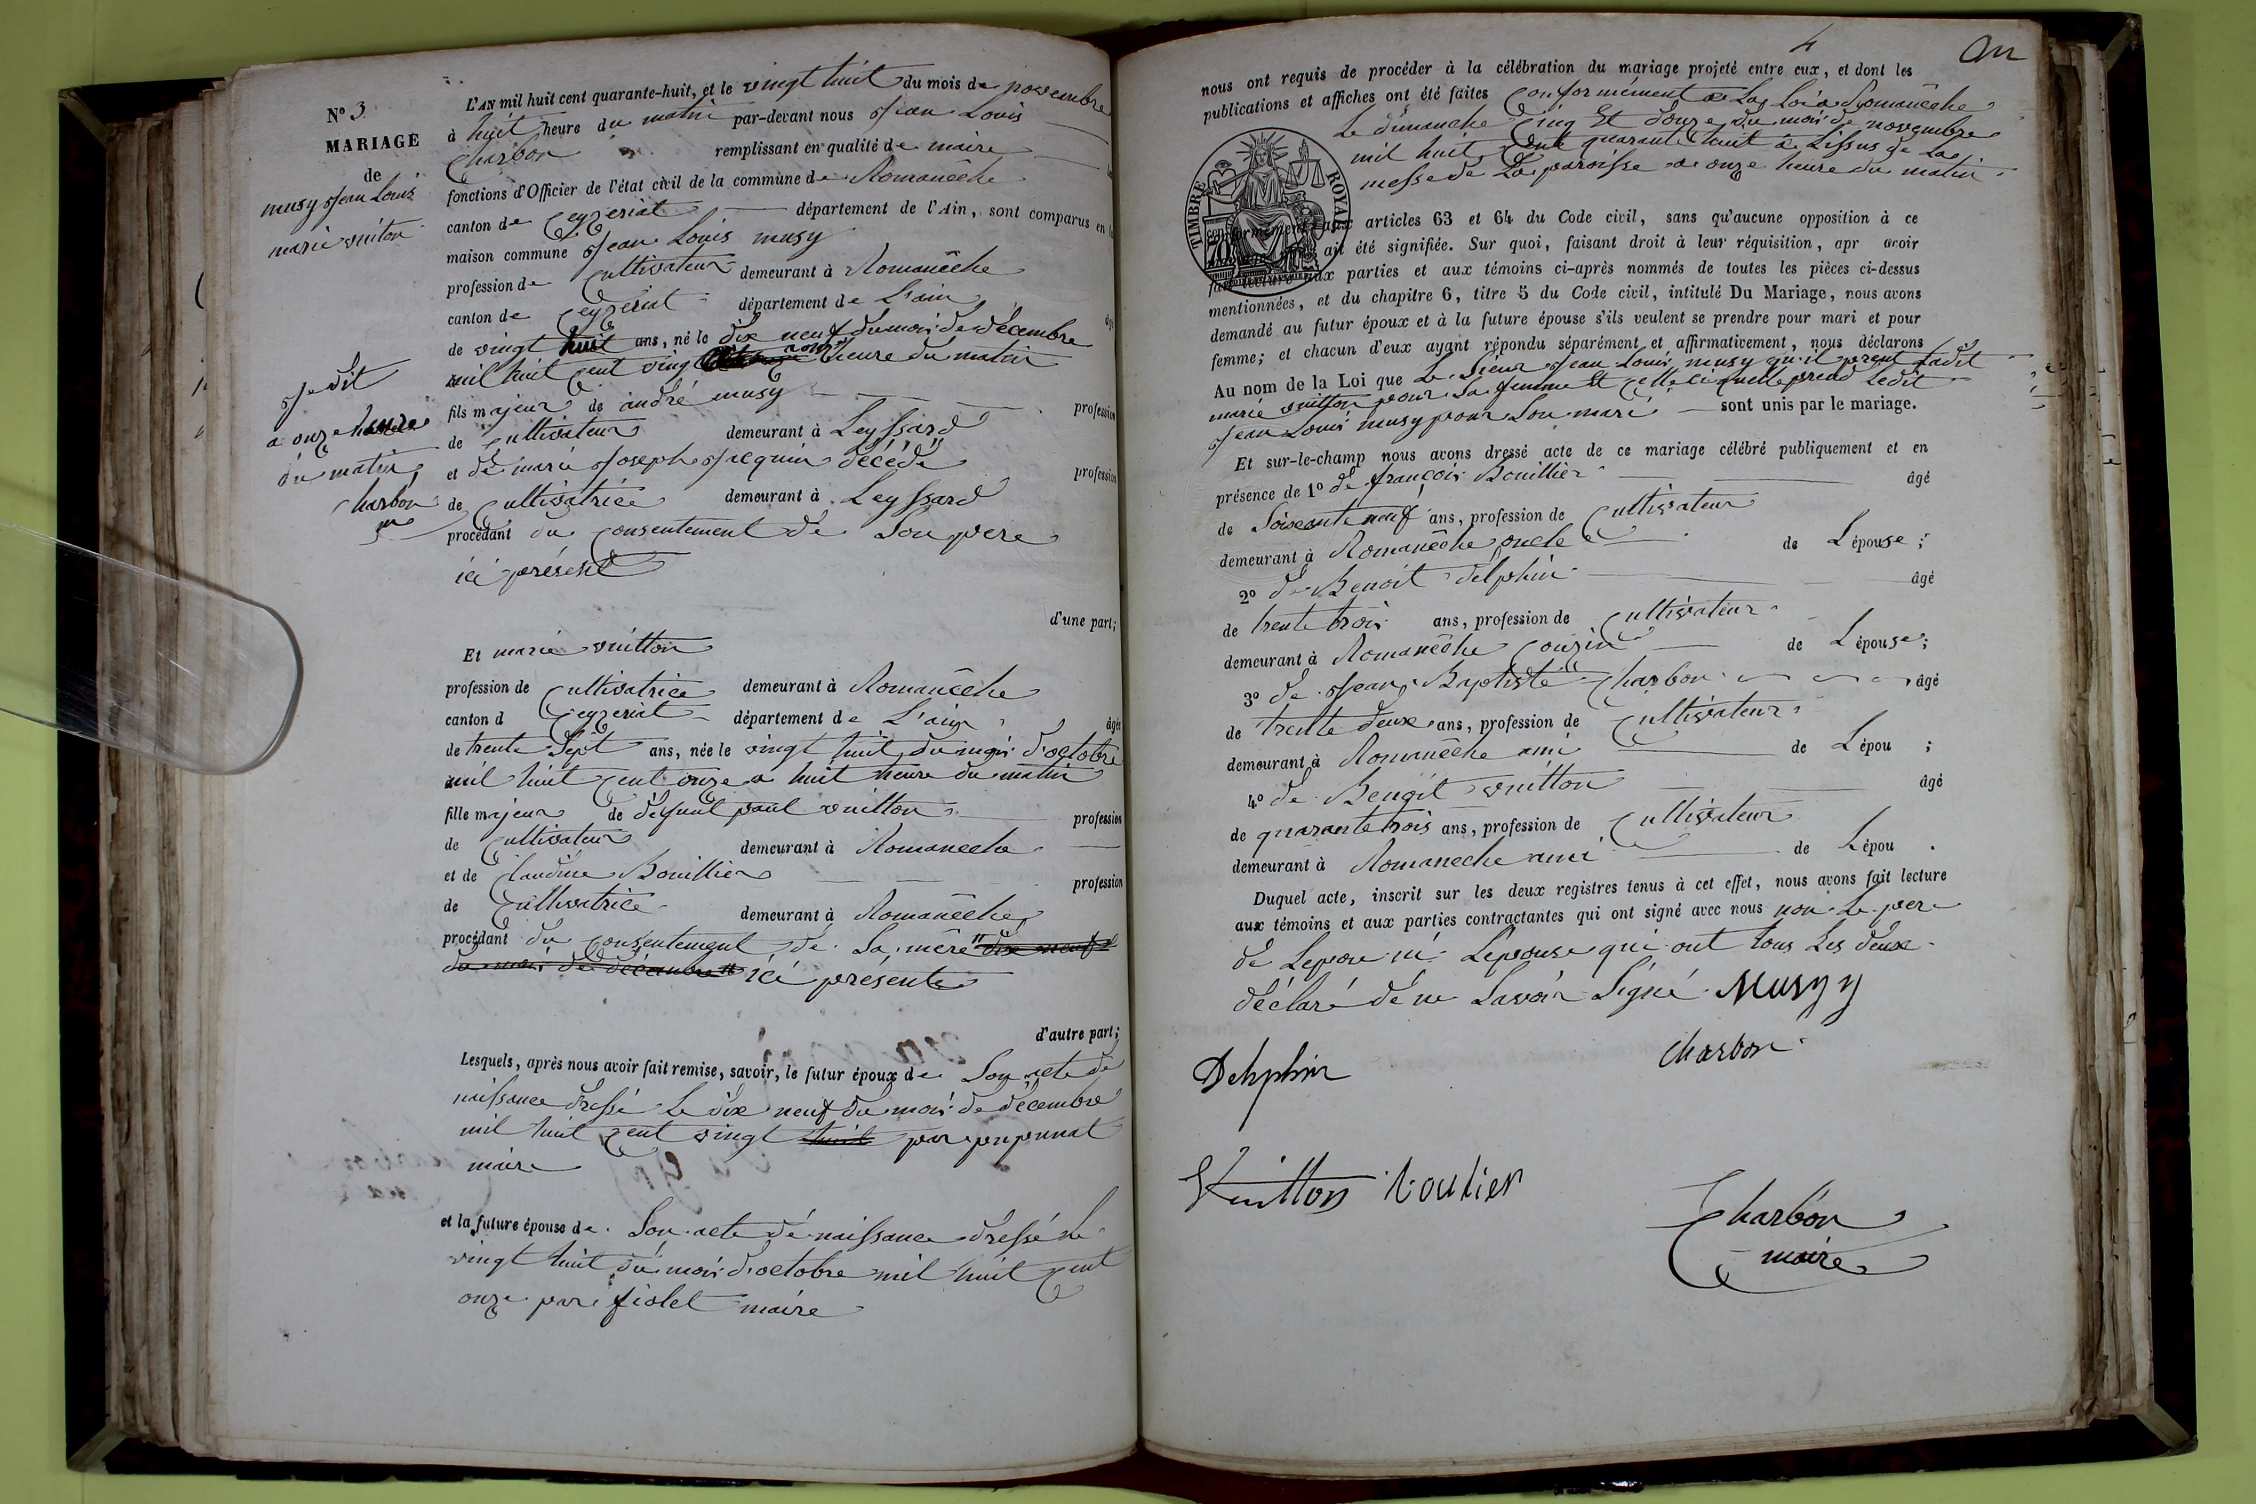 N° 3
MARIAGE
de
musy Jean Louis
marie vuiton
L'AN mil huit cent quarante-huit, et le vingt huit du mois de novembre
à huit heure du matin par-devant nous Jean Louis
Charbon remplissant en qualité de maire
fonctions d'Officier de l'état civil de la commune de Romanêche
canton de Ceyzeriat département de l'Ain, sont comparus en la
maison commune Jean Louis musy
profession de Cultivateur demeurant à Romanêche
canton de Ceyzeriat département de L'ain
de vingt huit ans, né le dix neuf du mois de décembre
mil huit cent vingt heure du matin
Je dit
a onze heure
du matin
Charbon
fils majeur de andré musy profession
de Cultivateur demeurant à Leyssard
et de marie Joseph Jacquin décédé profession
de Cultivatrice demeurant à Leyssard
procédant du Consentement de Son pere
ici présent
d'une part;
Et marie vuitton
profession de Cultivatrice demeurant à Romanêche
canton d Ceyzeriat département de L'ain âgée
de trente Sept ans, née le vingt huit du mois d'octobre
mil huit Cent onze a huit heure du matin
fille majeur de défunt paul vuitton profession
de Cultivateur demeurant à Romaneche
et de Claudine Bouillier profession
de Cultivatrice demeurant à Romanêche
procédant du Consentement de Sa mère dix neuf
du mois de décembre ici présente
d'autre part;
Lesquels, après nous avoir fait remise, savoir, le futur époux de Son acte de
naissance dressé Le dix neuf du mois de décembre
mil huit Cent vingt huit par
maire
et la future épouse de Son acte de naissance dressé le
vingt huit du mois d'octobre mil huit Cent
onze par fiolet maire
4
nous ont requis de procéder à la célébration du mariage projeté entre eux, et dont les
publications et affiches ont été faites Conformément a La Loi a Romanêche
Le dimanche Cinq Et douze du mois de novembre
mil huit Cent quarante huit a Lissus de La
messe de La paroisse a onze heure du matin
TIMBRE ROYAL
conformément aux articles 63 et 64 du Code civil, sans qu'aucune opposition à ce
ait été signifiée. Sur quoi, faisant droit à leur réquisition, apr avoir
fait lecture aux parties et aux témoins ci-après nommés de toutes les pièces ci-dessus
mentionnées, et du chapitre 6, titre 5 du Code civil, intitulé Du Mariage, nous avons
demandé au futur époux et à la future épouse s'ils veulent se prendre pour mari et pour
femme; et chacun d'eux ayant répondu séparément et affirmativement, nous déclarons
Au nom de la Loi que Le Sieur Jean Louis musy qu'il prent Ladit
marie vuitton pour Sa femme Et Celle ci quelle prend Ledit
Jean Louis musy pour Son mari sont unis par le mariage.
Et sur-le-champ nous avons dressé acte de ce mariage célébré publiquement et en
présence de 1° de françois Bouillier âgé
de Soiscante neuf ans, profession de Cultivateur
demeurant à Romanêche oncle de L'épouse;
2° de Benoit delphin âgé
de trente trois ans, profession de Cultivateur
demeurant à Romanêche Couzin de L'épouse;
3° de Jean Baptiste Charbon âgé
de trente deux ans, profession de Cultivateur
demeurant à Romanêche ami de Lépou ;
4° de Benoit vuitton âgé
de quarante trois ans, profession de Cultivateur
demeurant à Romaneche ami de Lépou .
Duquel acte, inscrit sur les deux registres tenus à cet effet, nous avons fait lecture
aux témoins et aux parties contractantes qui ont signé avec nous non Le pere
de Lepou ni Lepouse qui ont tous Les deux
déclaré de ne Savoir Signé Musy
Delphin
Charbon
Vuitton
Charbon
maire